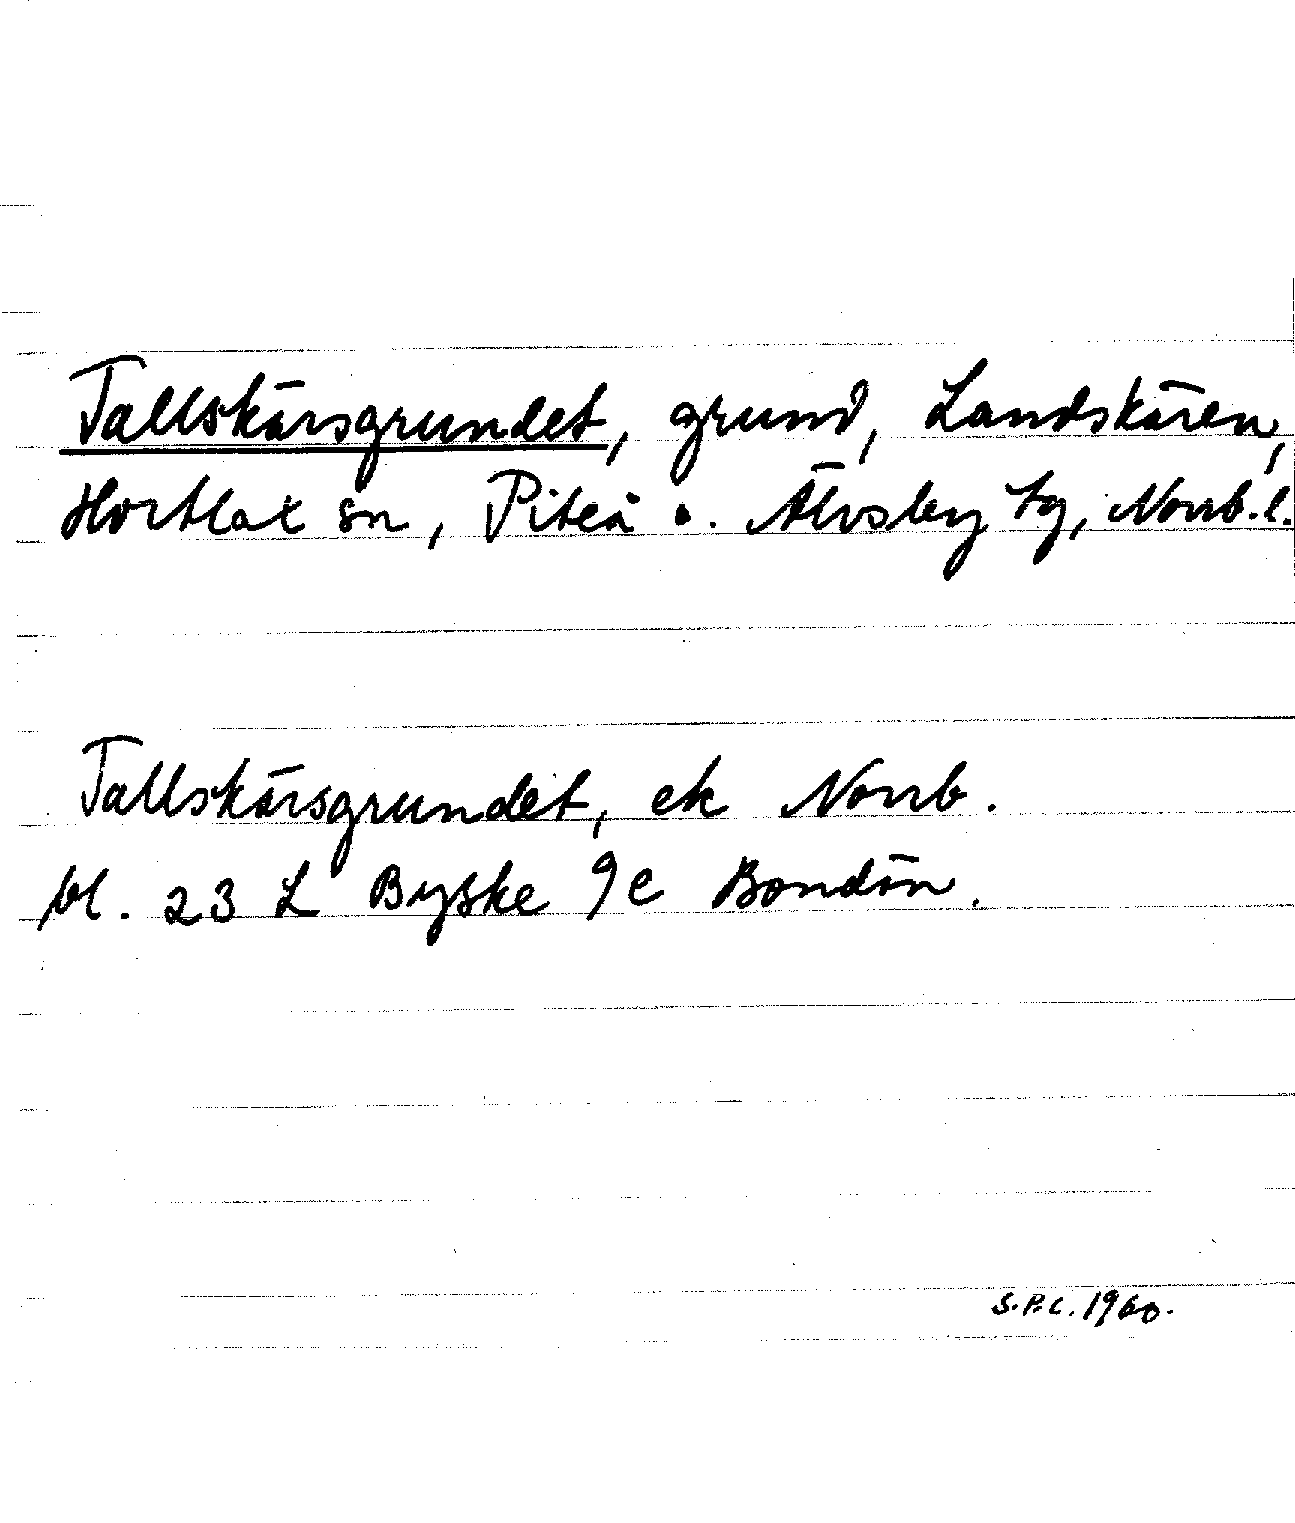 Tallskärsgrundet, grund, Landskären,
Hortlax sn, Piteå o. Älvsby tg, Norrb. l.
Tallskärsgrundet, ek Norrb.
bl. 23 L Byske 9 e Bondön.
S.P.C. 1960.